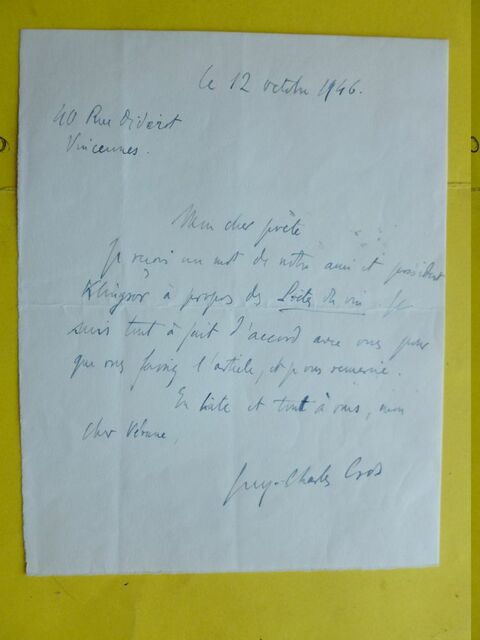 le 12 octobre 1946.
40 Rue Diderot
Vincennes.
Mon cher poète
Je reçois un mot de notre ami et président
Klingsor à propos des Poètes du vin. Je
suis tout à fait d'accord avec vous pour
que vous fassiez l'article, et vous remercie.
En hâte et tout à vous, mon
cher Vérane,
Guy-Charles Cros